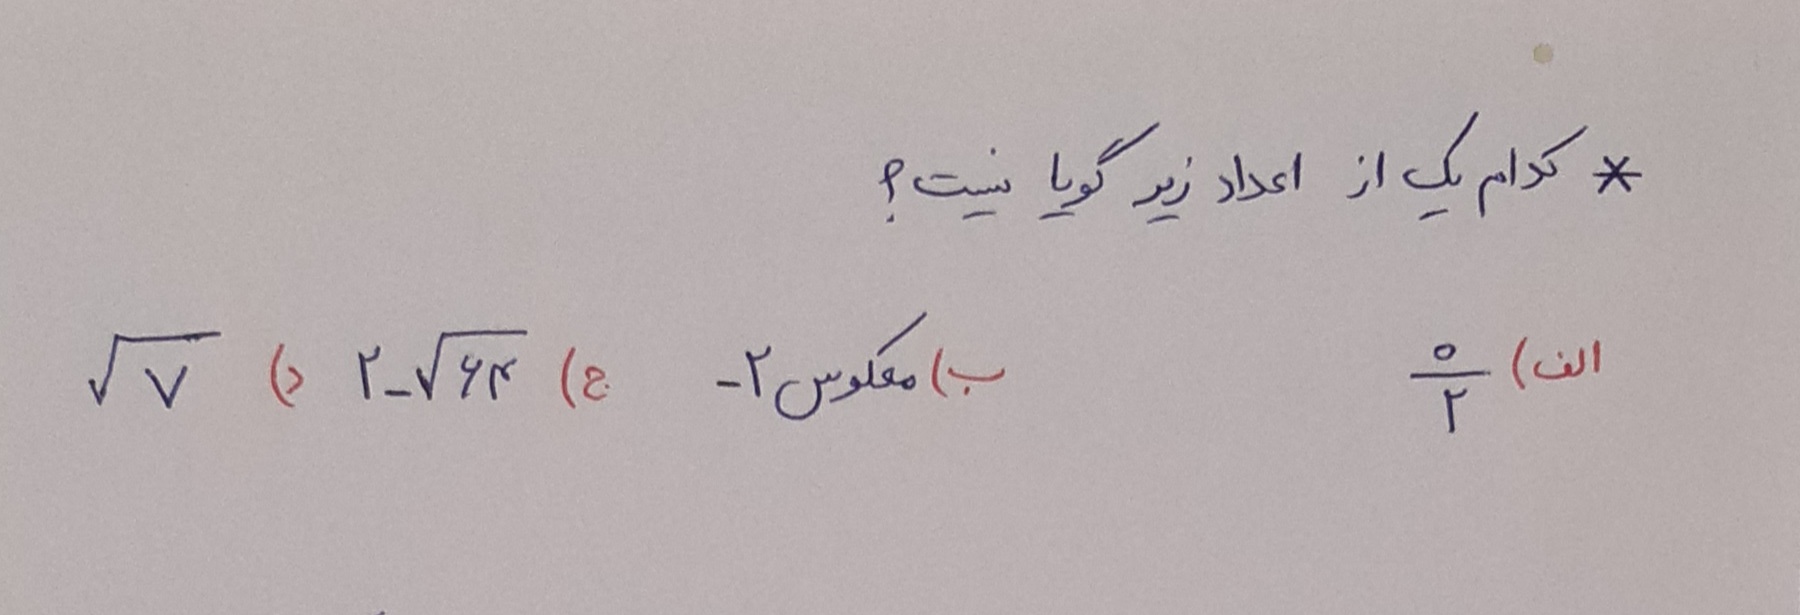 * کدام یک از اعداد زیر گویا نیست؟
الف) ۰/۲ ب) معکوس ۲- ج) ۲-√۶۴ د) √۷